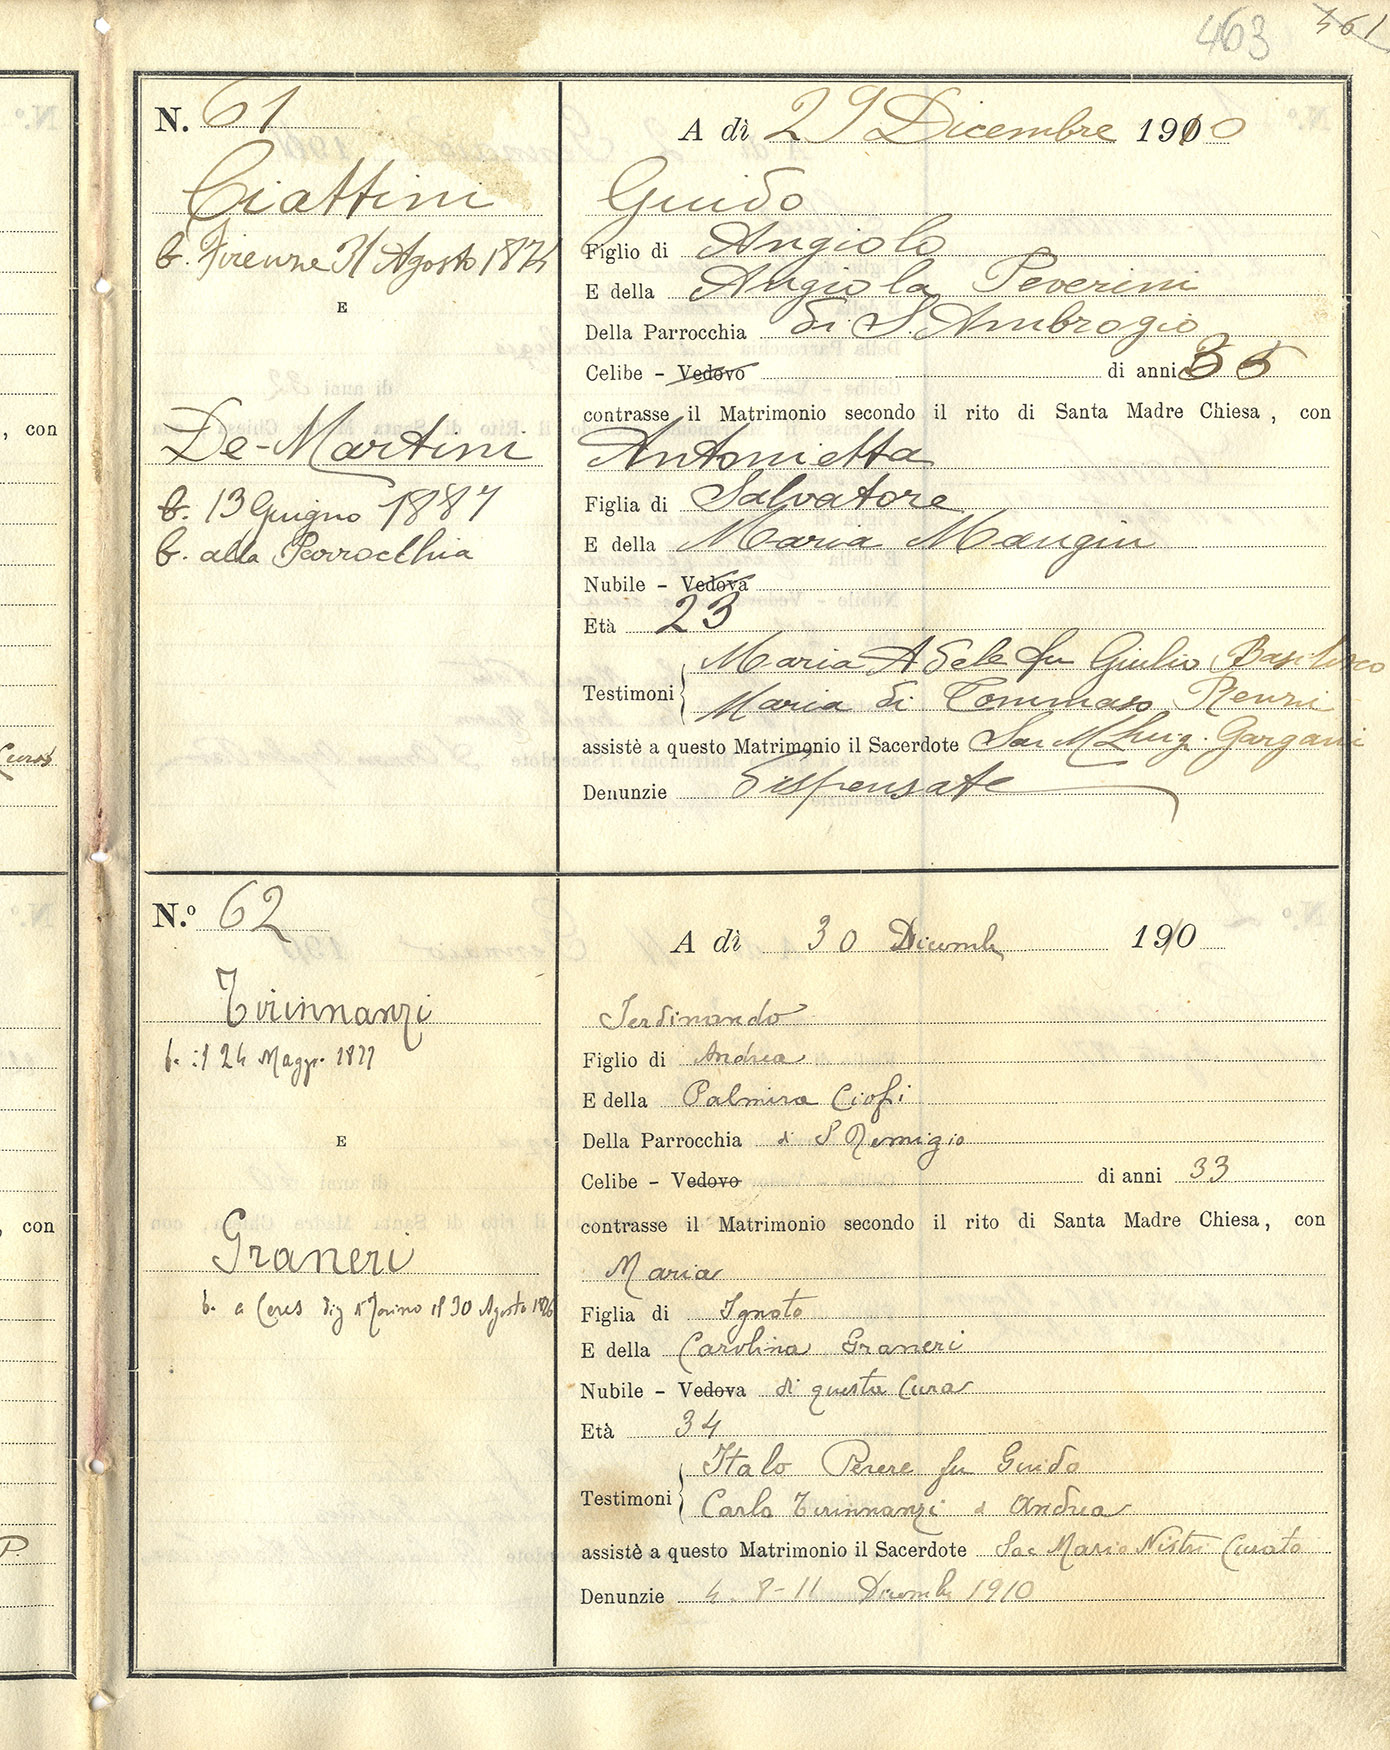 463 361
N. 61
A dì 29 Dicembre 1910
Ciattini
Guido
b. Firenze 31 Agosto 1875
Figlio di Angiolo
E della Angiola Peverini
E
Della Parrocchia di S. Ambrogio
Celibe - Vedovo di anni 35
, con
contrasse il Matrimonio secondo il rito di Santa Madre Chiesa, con
De-Martini
Antonietta
b. 13 Giugno 1887
Figlia di Salvatore
b. alla Parrocchia
E della Maria Mangin
Nubile - Vedova
Età 23
Maria Adele fu Giulio
Testimoni
Maria di Tommaso Renzi
assistè a questo Matrimonio il Sacerdote Sac Luig. Gargani
Denunzie dispensate
N.º 62
A dì 30 Dicembr 1910
Tirinnanzi
Ferdinando
b. il 24 Magg. 1877
Figlio di Andrea
E della Palmira Ciofi
E
Della Parrocchia di S Remigio
Celibe - Vedovo di anni 33
, con
contrasse il Matrimonio secondo il rito di Santa Madre Chiesa, con
Graneri
Maria
b. a Ceres di Torino il 30 Agosto 1876
Figlia di Ignoto
E della Carolina Graneri
Nubile - Vedova di questa Cura
Età 34
Italo Perere fu Guido
Testimoni
Carlo Tirinnanzi d Andrea
P.
assistè a questo Matrimonio il Sacerdote Sac Mario Nistri Curato
Denunzie 4. 8-11 Dicembr 1910